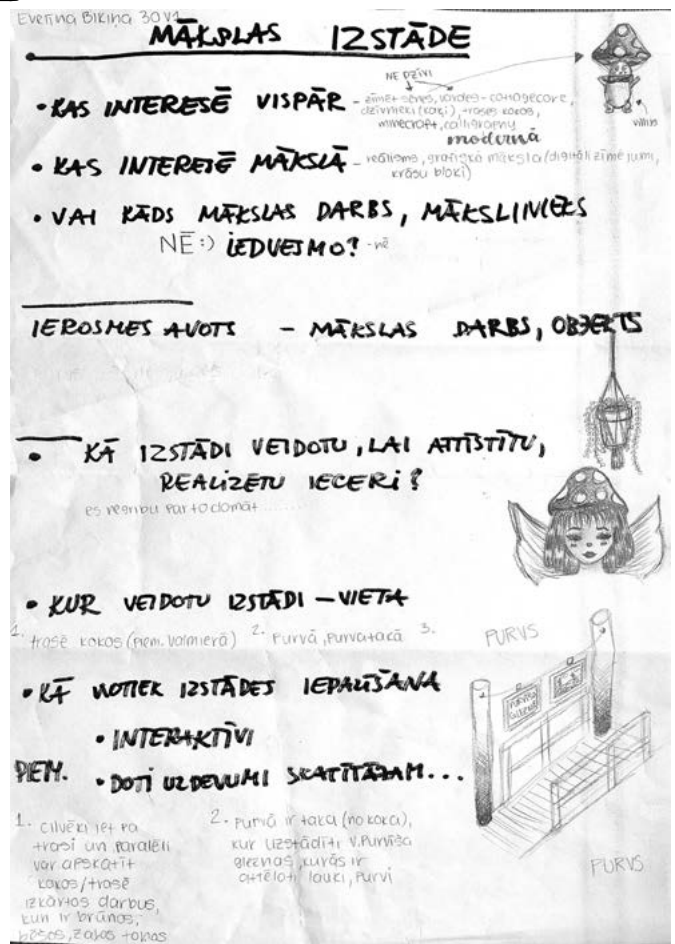 Everina Bikiņa 30 v1
MĀKSLAS IZSTĀDE
NE DZĪVI
• KAS INTERESĒ VISPĀR - zīmēt sēnes, - cottagecore,
dzīvnieki (kaķi), trases kokos,
minecraft, calligraphy
modernā
• KAS INTERESĒ MĀKSLĀ - reālisms, grafiskā māksla (digitāli zīmējumi,
krāsu bloki)
• VAI KĀDS MĀKSLAS DARBS, MĀKSLINIEKS
NĒ :) IEDVESMO? - nē
IEROSMES AVOTS - MĀKSLAS DARBS, OBJEKTS
• KĀ IZSTĀDI VEIDOTU, LAI ATTĪSTĪTU,
REALIZĒTU IECERI?
es negribu par to domāt .......
• KUR VEIDOTU IZSTĀDI - VIETA
1. trasē kokos (piem. Valmierā) 2. Purvā, purva takā 3.
PURVS
• KĀ NOTIEK IZSTĀDES IEPAZĪŠANA
• INTERAKTĪVI
PIEM. • DOTI UZDEVUMI SKATĪTĀJAM...
1. cilvēki iet pa
trasi un paralēli
var apskatīt
kokos/trasē
izkārtos darbus,
kuri ir brūnos,
bēšos, zaļos toņos
2. Purvā ir taka (no koka),
kur uzstādīti V. Purvīša
gleznas, kurās ir
attēloti lauki, purvi
PURVS